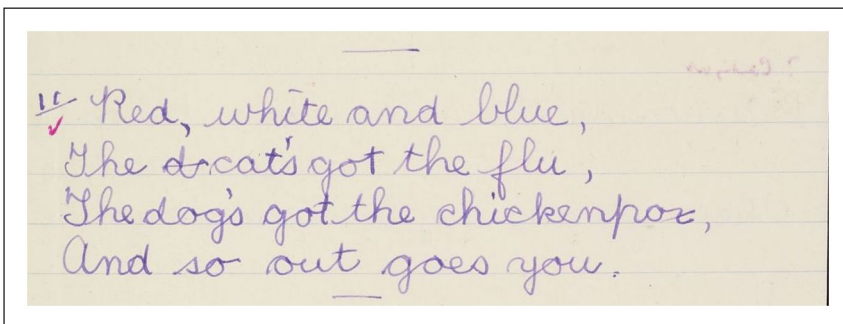 11 Red, white and blue,
The d cat's got the flu,
The dog's got the chickenpox,
And so out goes you.